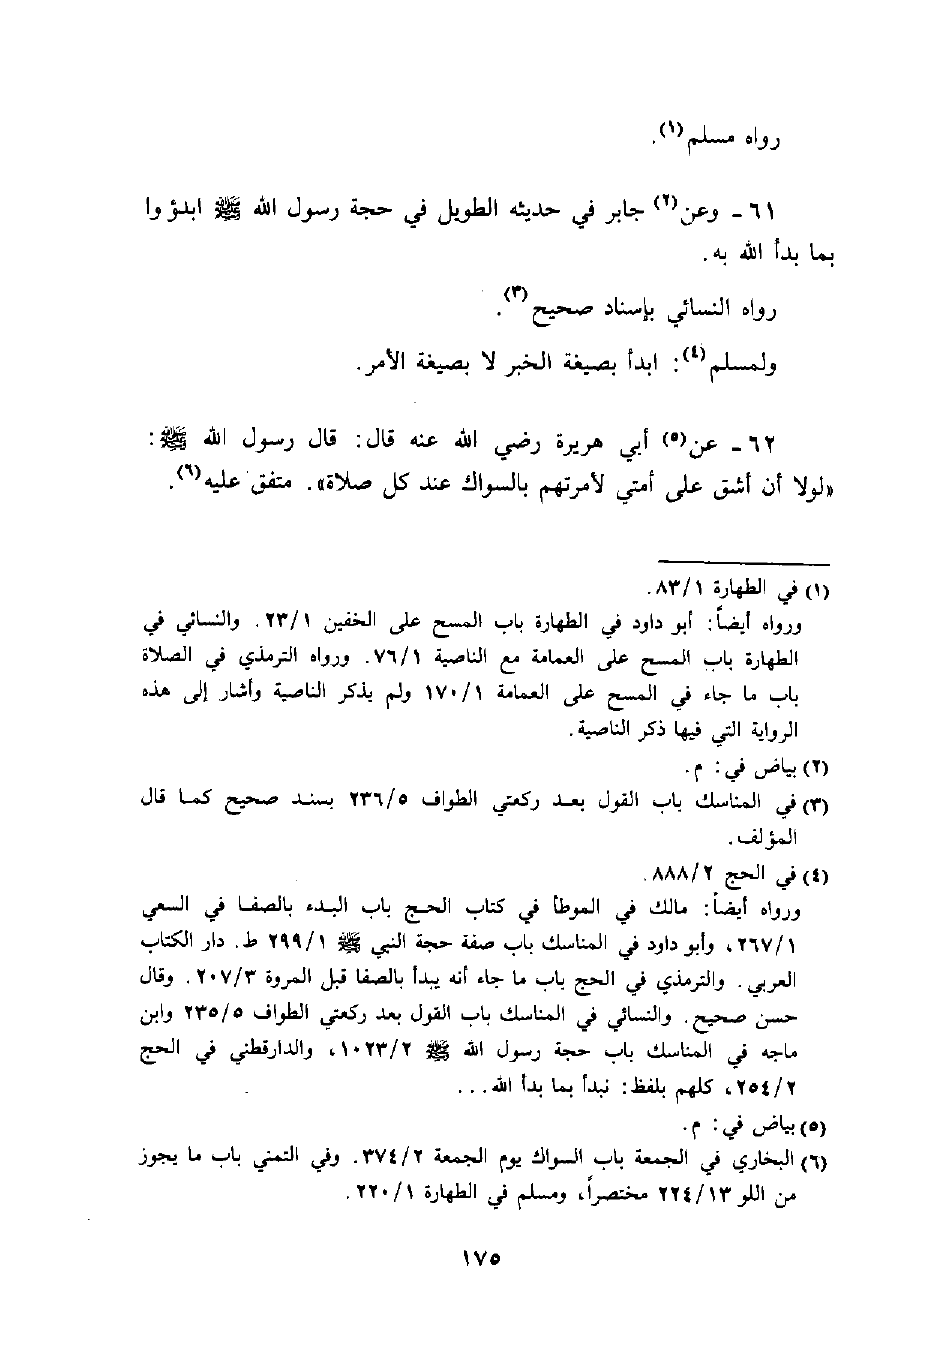 رواه مسلم(١).
٦١ - وعن(٢) جابر في حديثه الطويل في حجة رسول الله ﷺ ابدؤوا
بما بدأ الله به.
رواه النسائي بإسناد صحيح(٣).
ولمسلم(٤): ابدأ بصيغة الخبر لا بصيغة الأمر.
٦٢ - عن(٥) أبي هريرة رضي الله عنه قال: قال رسول الله ﷺ:
«لولا أن أشق على أمتي لأمرتهم بالسواك عند كل صلاة». متفق عليه(٦).
(١) في الطهارة ٨٣/١.
ورواه أيضاً: أبو داود في الطهارة باب المسح على الخفين ٢٣/١. والنسائي في
الطهارة باب المسح على العمامة مع الناصية ٧٦/١. ورواه الترمذي في الصلاة
باب ما جاء في المسح على العمامة ١٧٠/١ ولم يذكر الناصية وأشار إلى هذه
الرواية التي فيها ذكر الناصية.
(٢) بياض في: م.
(٣) في المناسك باب القول بعد ركعتي الطواف ٢٣٦/٥ بسند صحيح كما قال
المؤلف.
(٤) في الحج ٨٨٨/٢.
ورواه أيضاً: مالك في الموطأ في كتاب الحج باب البدء بالصفا في السعي
٢٦٧/١، وأبو داود في المناسك باب صفة حجة النبي ﷺ ٢٩٩/١ ط. دار الكتاب
العربي. والترمذي في الحج باب ما جاء أنه يبدأ بالصفا قبل المروة ٢٠٧/٣. وقال
حسن صحيح. والنسائي في المناسك باب القول بعد ركعتي الطواف ٢٣٥/٥ وابن
ماجه في المناسك باب حجة رسول الله ﷺ ١٠٢٣/٢، والدارقطني في الحج
٢٥٤/٢، كلهم بلفظ: نبدأ بما بدأ الله...
(٥) بياض في: م.
(٦) البخاري في الجمعة باب السواك يوم الجمعة ٣٧٤/٢. وفي التمني باب ما يجوز
من اللو ٢٢٤/١٣ مختصراً، ومسلم في الطهارة ٢٢٠/١.
١٧٥